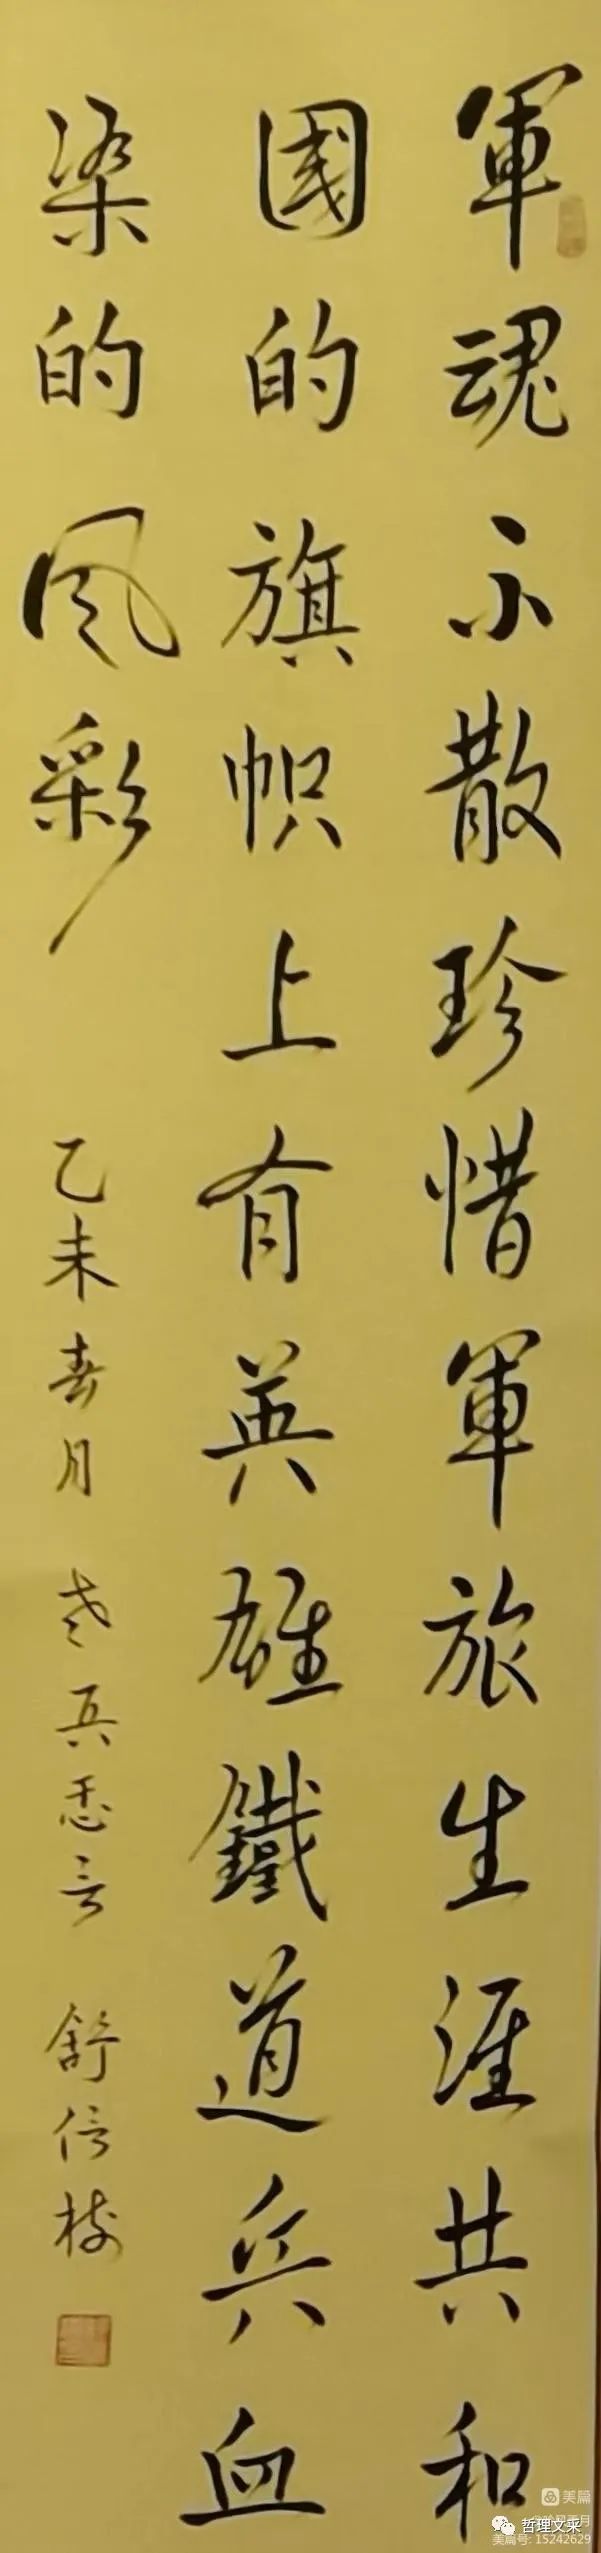 軍魂不散珍惜軍旅生涯共和
國的旗帜上有英雄鐵道兵血
染的风彩
乙未春月 老兵 舒信
美篇
哲理文采
美篇号: 15242629